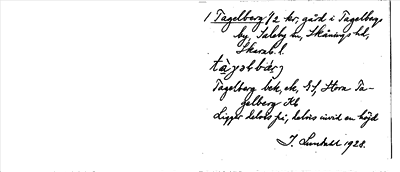 1 Tagelberg, 1/2 kr, gård i Tagelbergs
by, Saleby sn, Skånings hd,
Skarab. l.
tàɡəlbær̨j
Tagelberg bek, ek, St, Stora Ta-
gelberg Kb
Ligger delvis på, delvis invid en höjd
J. Lundahl 1928.